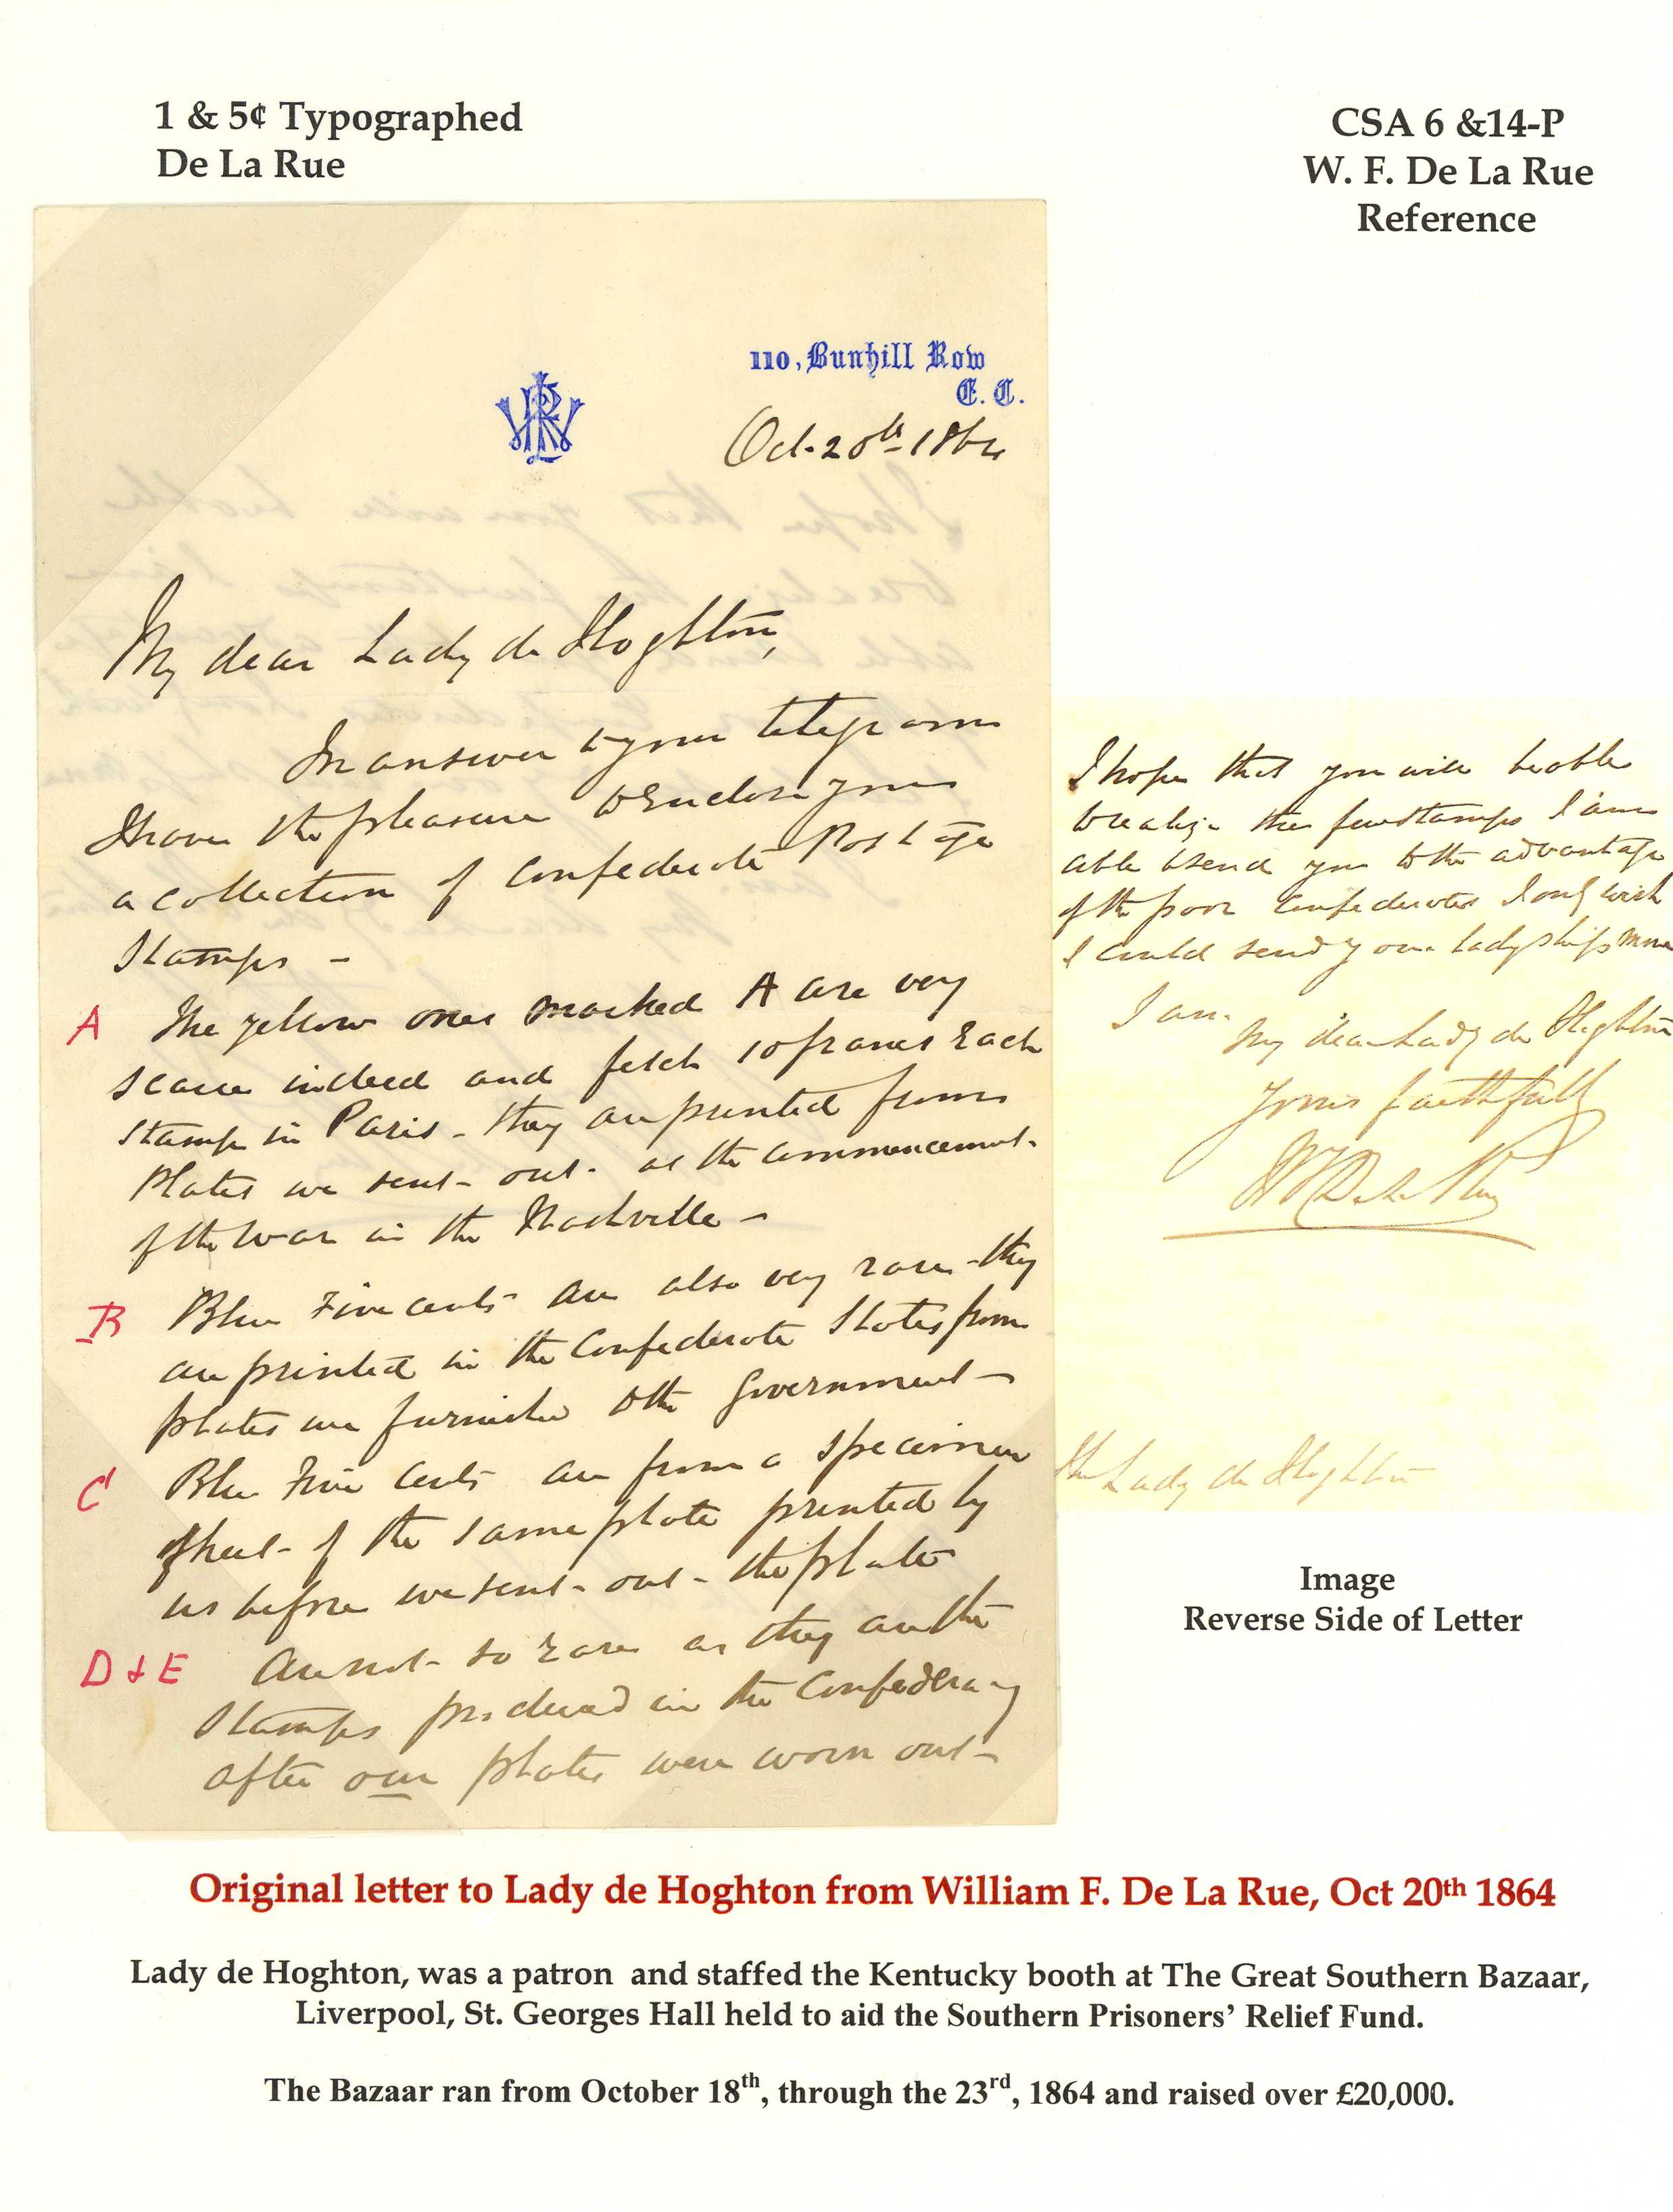 1 & 5¢ Typographed
De La Rue
CSA 6 &14-P
W. F. De La Rue
Reference
110, Bunhill Row
E. C.
Oct. 20th 1864
My dear Lady de Hoghton,
In answer to your telegram
I have the pleasure to enclose you
a collection of Confederate Postage
Stamps -
A The yellow ones marked A are very
scarce indeed and fetch 10 francs each
stamp in Paris - they are printed from
Plates we sent out at the commencement
of the war in the Nashville -
B Blue Five cents are also very rare - they
are printed in the Confederate States from
plates we furnished to the Government -
C Blue Five Cents are from a specimen
sheet of the same plate printed by
us before we sent out the plate
D & E Are not so rare as they are the
stamps produced in the Confederacy
after our plates were worn out -
I hope that you will be able
to realize the few stamps I am
able to send you to the advantage
of the poor Confederates I only wish
I could send your ladyship more
I am.
My dear Lady de Hoghton
Yours faithfully
W F De La Rue
The Lady de Hoghton
Image
Reverse Side of Letter
Original letter to Lady de Hoghton from William F. De La Rue, Oct 20th 1864
Lady de Hoghton, was a patron and staffed the Kentucky booth at The Great Southern Bazaar,
Liverpool, St. Georges Hall held to aid the Southern Prisoners’ Relief Fund.
The Bazaar ran from October 18th, through the 23rd, 1864 and raised over £20,000.